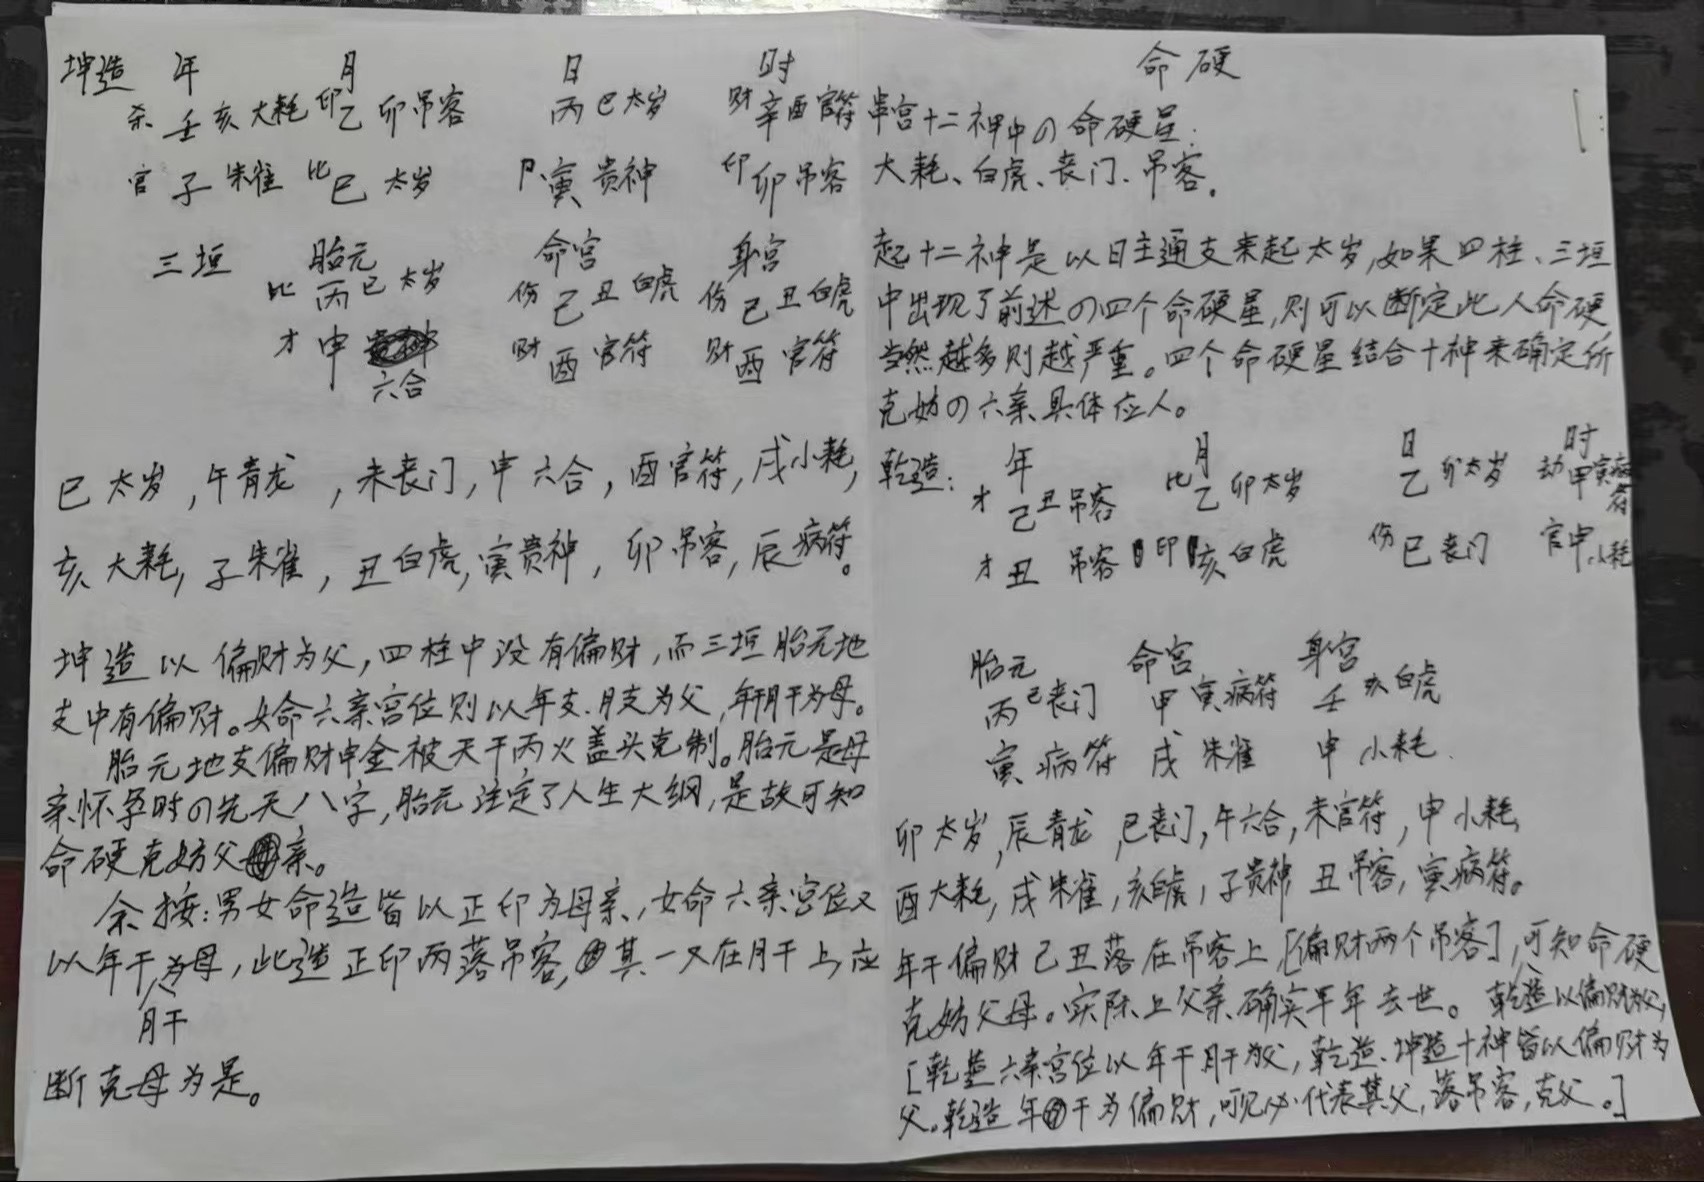 命硬
串宫十二神中の命硬星:
大耗、白虎、丧门、吊客。
起十二神是以日主通支来起太岁,如果四柱、三垣
中出现了前述の四个命硬星,则可以断定此人命硬
当然越多则越严重。四个命硬星结合十神来确定所
克妨の六亲具体应人。
乾造: 年 月 日 时
才 己 丑吊客 比 乙 卯太岁 乙 卯太岁 劫 甲 寅病符
才 丑 吊客 印 亥白虎 伤 巳 丧门 官 申 小耗
胎元 命宫 身宫
丙 巳丧门 甲 寅病符 壬 亥白虎
寅 病符 戌 朱雀 申 小耗
卯太岁,辰青龙,巳丧门,午六合,未官符,申小耗,
酉大耗,戌朱雀,亥白虎,子贵神,丑吊客,寅病符。
年干偏财己丑落在吊客上[偏财两个吊客],可知命硬
克妨父母。实际上父亲确实早年去世。乾造以偏财为父,
[乾造六亲宫位以年干月干为父,乾造、坤造十神皆以偏财为
父。乾造年干为偏财,可见必代表其父,落吊客,克父。]
坤造 年 月 日 时
杀 壬 亥大耗 印 乙 卯吊客 丙 巳太岁 财 辛 酉官符
官 子 朱雀 比 巳 太岁 卩 寅 贵神 印 卯吊客
三垣 胎元 命宫 身宫
比 丙 巳太岁 伤 己 丑白虎 伤 己 丑白虎
才 申 六合 财 酉 官符 财 酉 官符
巳太岁,午青龙,未丧门,申六合,酉官符,戌小耗,
亥大耗,子朱雀,丑白虎,寅贵神,卯吊客,辰病符。
坤造以偏财为父,四柱中没有偏财,而三垣胎元地
支中有偏财。女命六亲宫位则以年支、月支为父,年干月干为母。
胎元地支偏财申金被天干丙火盖头克制。胎元是母
亲怀孕时の先天八字,胎元注定了人生大纲,是故可知
命硬克妨父亲。
余按:男女命造皆以正印为母亲,女命六亲宫位又
以年干月干为母,此造正印两落吊客,其一又在月干上,应
断克母为是。